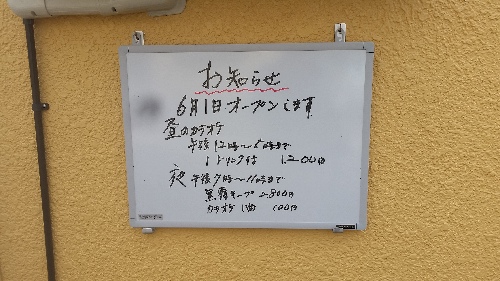 お知らせ
6月1日オープンします
昼のカラオケ
午後12時～5時まで
1ドリンク付 1.200円
夜 午後7時～11時まで
黒霧キープ 2.800円
カラオケ 1曲 100円